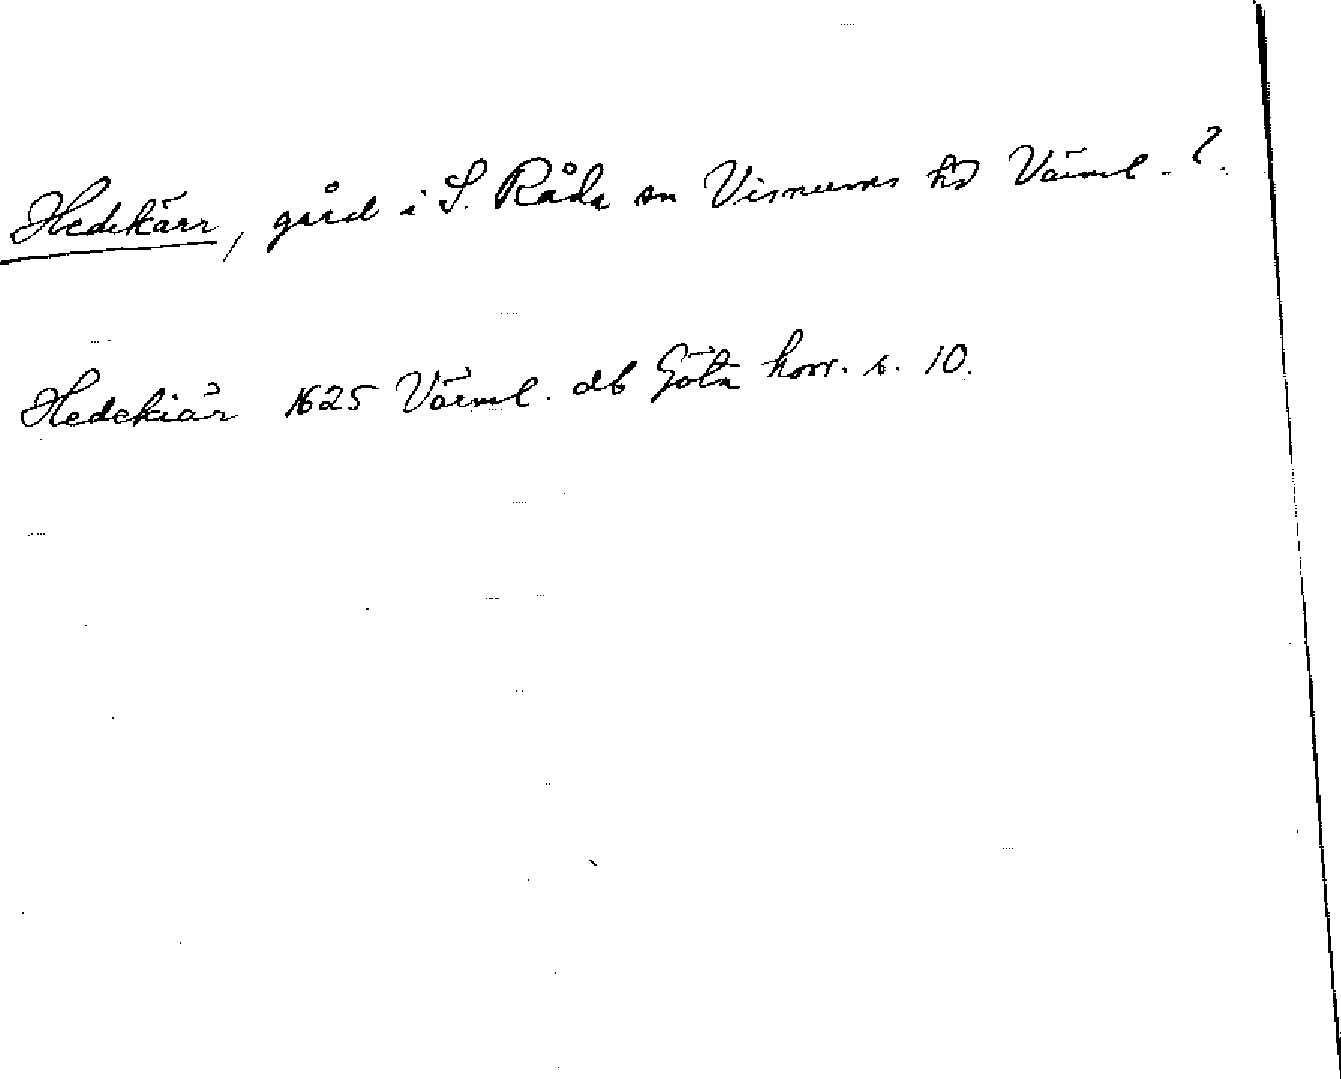 Hedekärr, gård i S. Råda sn Visnums hd Värml. ?.
Hedekiär 1625 Värml. db Göta horr. s. 10.